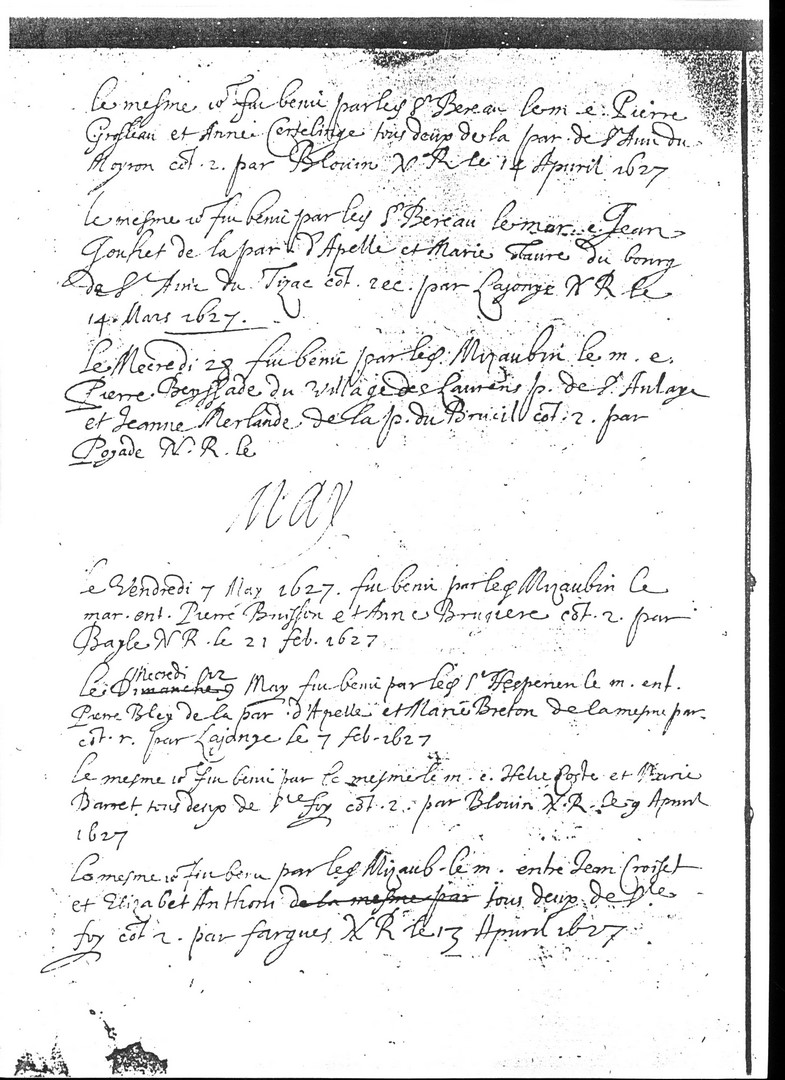 le mesme io.r fut beni par led s.r Bereau le m. e. Pierre
Grosleau et Anne tous deux de la par. de S.t Avi du
Moyron cōt. 2. par Blouin N R le 14 Apuril 1627
le mesme io.r fut beni par led s.r Bereau le mar. e. Jean
Goufret de la par. d'Apelle et Marie Faure du bourg
de S.t Avi du Tizac cōt. rec. par Lajonye N R le
14. Mars 1627.
Le Mecredi 28 fut beni par led. Mizaubin le m. e.
Pierre Beysselade du village des Laurens p. de S.t Aulaye
et Jeanne Merlande de la p. du Brueil cōt. 2. par
Pojade N. R. le
May
le Vendredi 7 May 1627. fut beni par led Mizaubin le
mar. ent. Pierre Buisson et Anne Brugiere cōt. 2. par
Bayle N R. le 21 feb. 1627
Mecredi 12
le Dimanche 9 May fut beni par led s.r Hesperien le m. ent.
Pierre Bley de la par. d'Apelle et Marie Breton de la mesme par.
cōt. r. par Lajonye le 7 feb. 1627
le mesme io.r fut beni par le mesme le m. e. Helie Coste et Marie
Barret tous deux de S.te foy cōt. 2. par Blouin N. R. le 9 Apuril
1627
le mesme io.r fut beni par led Mizaub. le m. entre Jean Croiset
et Elizabet Anthoni de la mesme par tous deux de S.te
foy cōt 2. par fargues N R le 13 Apuril 1627